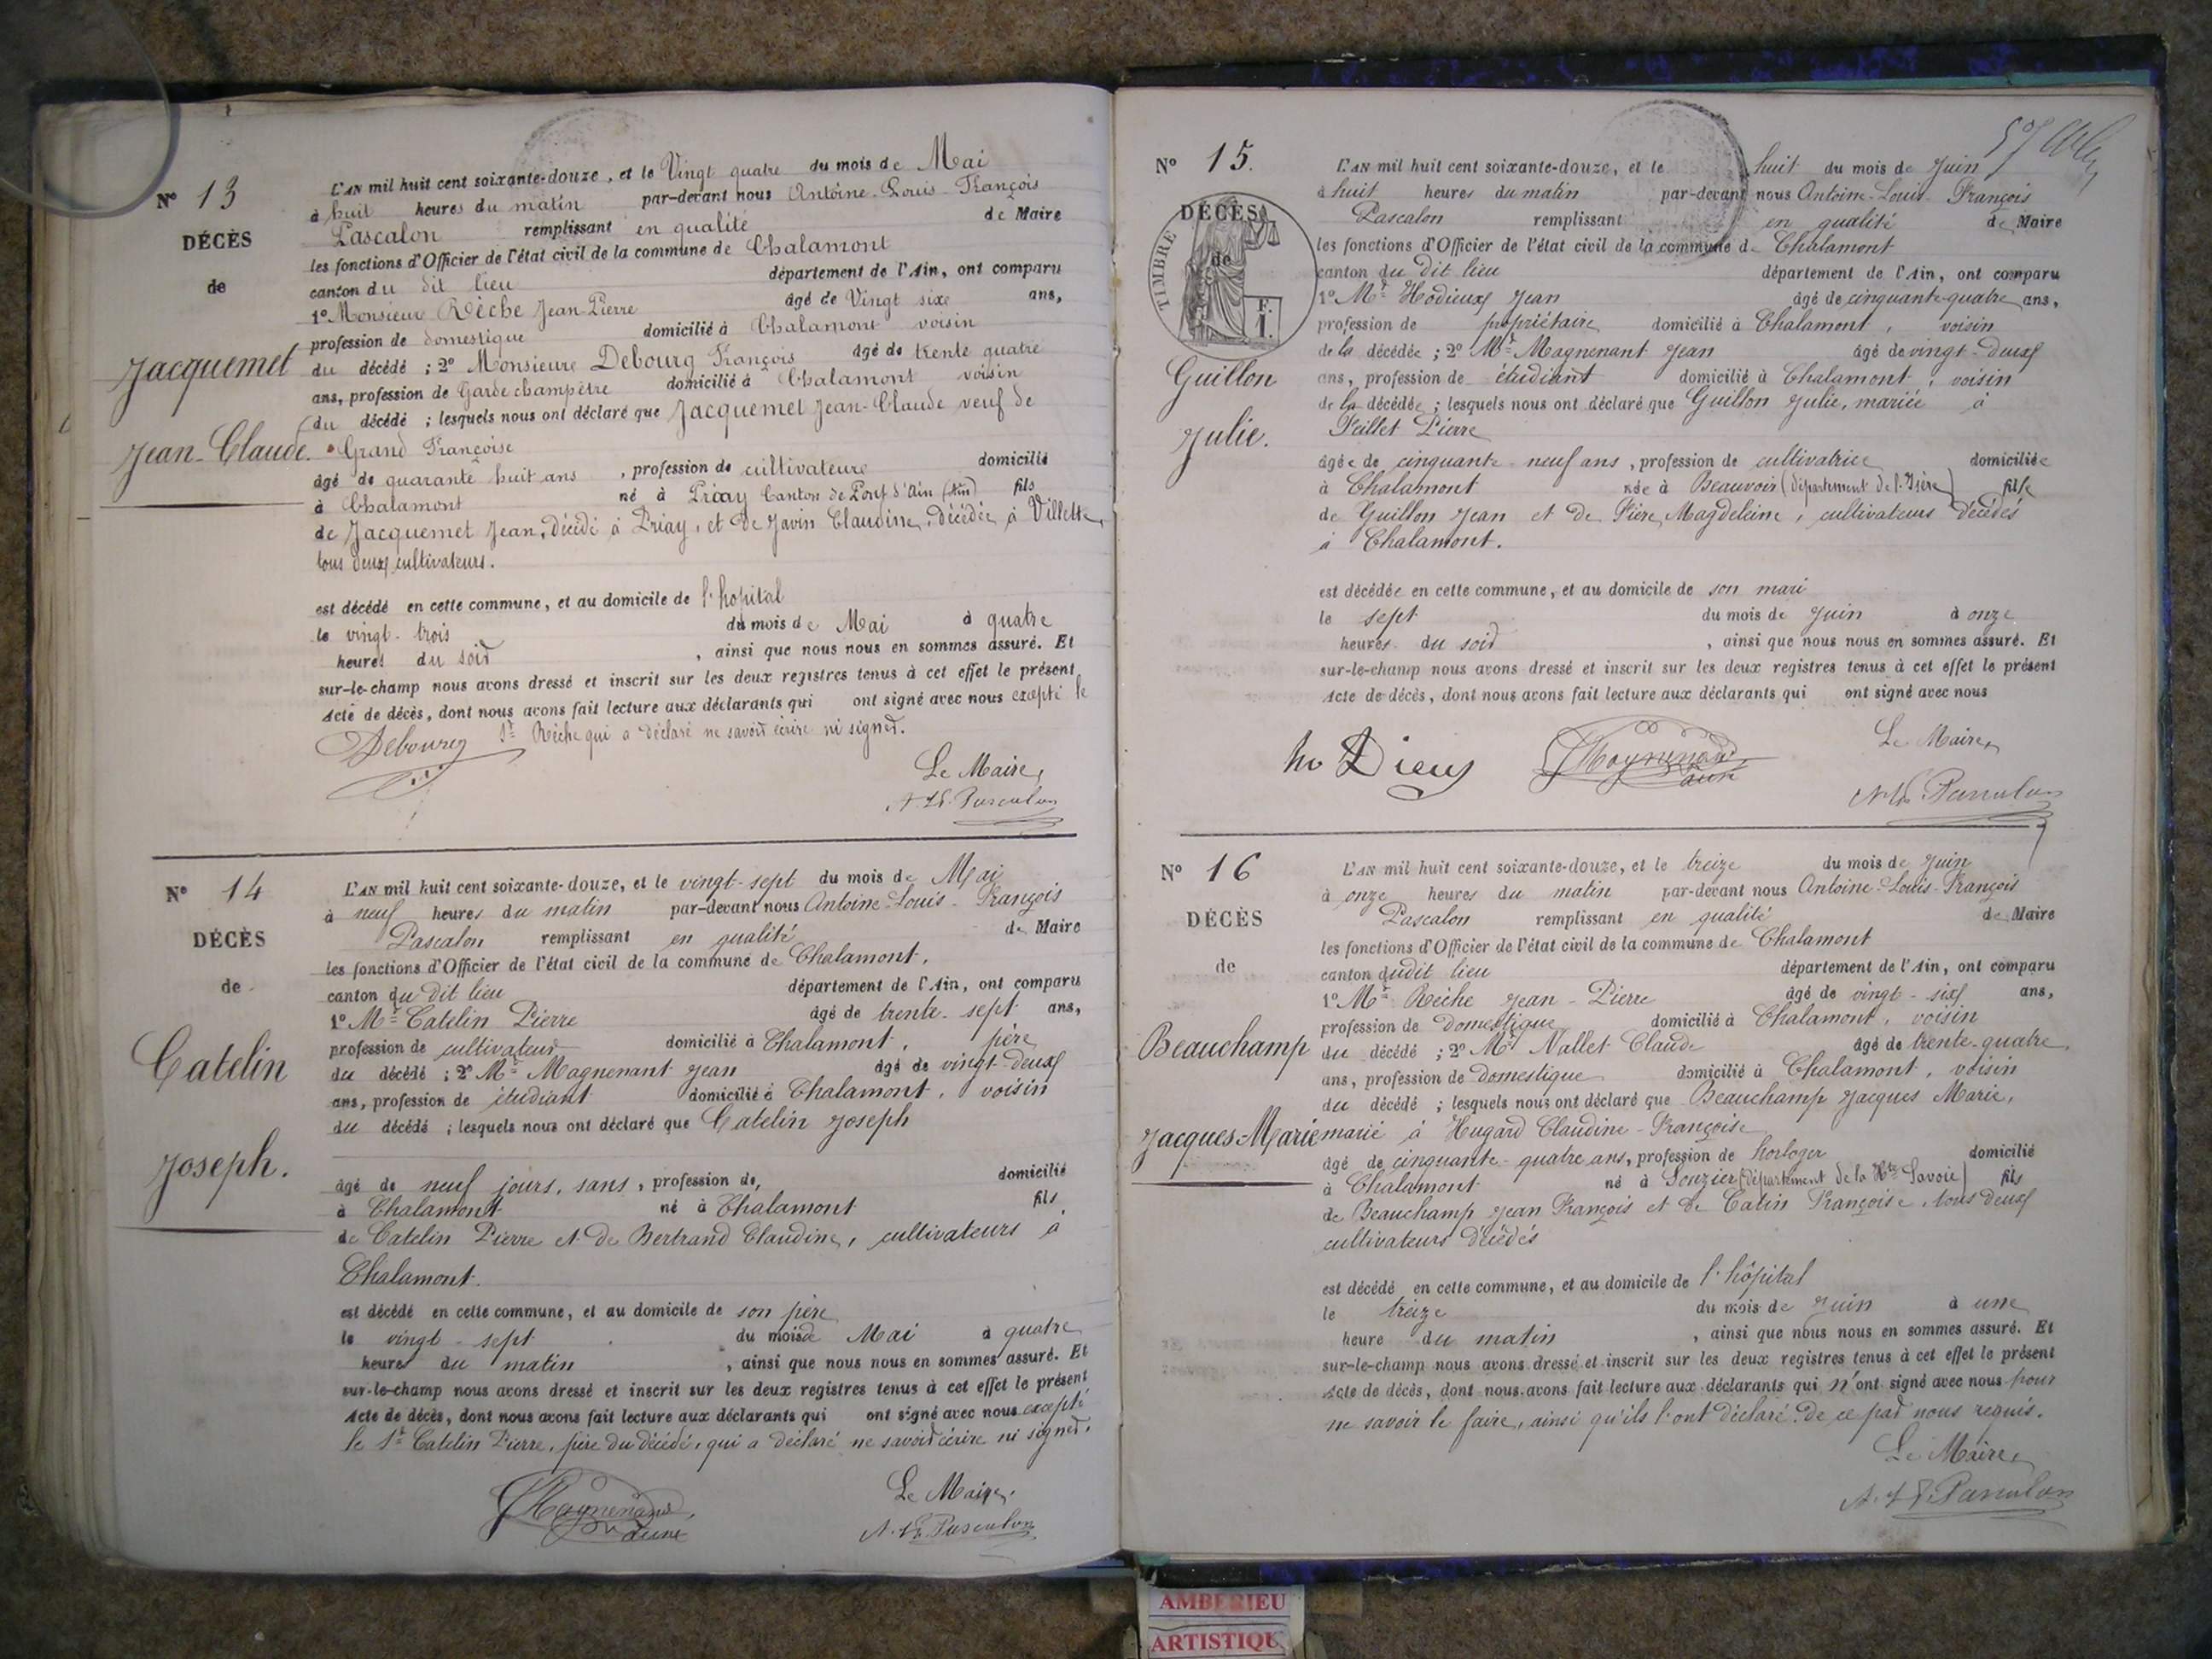 N° 13
DÉCÈS
de
Jacquemet
Jean-Claude.
L'AN mil huit cent soixante-douze, et le Vingt quatre du mois de Mai
à huit heures du matin par-devant nous Antoine-Louis-François
Pascalon remplissant en qualité de Maire
les fonctions d'Officier de l'état civil de la commune de Chalamont
canton du dit lieu département de l'Ain, ont comparu
1° Monsieur Rèche Jean-Pierre âgé de Vingt sixe ans,
profession de domestique domicilié à Chalamont voisin
du décédé ; 2° Monsieure Debourg François âgé de trente quatre
ans, profession de Garde champêtre domicilié à Chalamont voisin
du décédé ; lesquels nous ont déclaré que Jacquemet Jean-Claude veuf de
Grand Françoise
âgé de quarante huit ans, profession de cultivateure domicilié
à Chalamont né à Priay Canton de Pont d'Ain (Ain) fils
de Jacquemet Jean, décédé à Priay, et de Javin Claudine, décédée à Villette,
tous deux cultivateurs.
est décédé en cette commune, et au domicile de l'hopital
le vingt-trois du mois de Mai à quatre
heures du soir, ainsi que nous nous en sommes assuré. Et
sur-le-champ nous avons dressé et inscrit sur les deux registres tenus à cet effet le présent
Acte de décès, dont nous avons fait lecture aux déclarants qui ont signé avec nous excepté le
Sr Rèche qui a déclaré ne savoir écrire ni signer.
Debourg
Le Maire,
A. L. F. Pascalon
N° 14
DÉCÈS
de
Catelin
Joseph.
L'AN mil huit cent soixante-douze, et le vingt-sept du mois de Mai
à neuf heures du matin par-devant nous Antoine-Louis-François
Pascalon remplissant en qualité de Maire
les fonctions d'Officier de l'état civil de la commune de Chalamont,
canton du dit lieu département de l'Ain, ont comparu
1° Mr Catelin Pierre âgé de trente-sept ans,
profession de cultivateur domicilié à Chalamont, père
du décédé ; 2° Mr Magnenant Jean âgé de vingt-deux
ans, profession de étudiant domicilié à Chalamont, voisin
du décédé ; lesquels nous ont déclaré que Catelin Joseph
âgé de neuf jours, sans, profession de, domicilié
à Chalamont né à Chalamont fils
de Catelin Pierre et de Bertrand Claudine, cultivateurs à
Chalamont.
est décédé en cette commune, et au domicile de son père
le vingt-sept du mois de Mai à quatre
heures du matin, ainsi que nous nous en sommes assuré. Et
sur-le-champ nous avons dressé et inscrit sur les deux registres tenus à cet effet le présent
Acte de décès, dont nous avons fait lecture aux déclarants qui ont signé avec nous excepté
le Sr Catelin Pierre, père du décédé, qui a déclaré ne savoir écrire ni signer.
Magnenant
Le Maire,
A. L. F. Pascalon
N° 15.
DÉCÈS
de
TIMBRE
F.
1.
Guillon
Julie.
L'AN mil huit cent soixante-douze, et le huit du mois de Juin
à huit heures du matin par-devant nous Antoine-Louis-François
Pascalon remplissant en qualité de Maire
les fonctions d'Officier de l'état civil de la commune de Chalamont
canton du dit lieu département de l'Ain, ont comparu
1° Mr Hodieux Jean âgé de cinquante-quatre ans,
profession de propriétaire domicilié à Chalamont, voisin
de la décédée ; 2° Mr Magnenant Jean âgé de vingt-deux
ans, profession de étudiant domicilié à Chalamont, voisin
de la décédée ; lesquels nous ont déclaré que Guillon Julie, mariée à
Peillet Pierre
âgée de cinquante-neuf ans, profession de cultivatrice domiciliée
à Chalamont née à Beauvoir (département de l'Isère) fille
de Guillon Jean et de Pière Magdeleine, cultivateurs décédés
à Chalamont.
est décédée en cette commune, et au domicile de son mari
le sept du mois de Juin à onze
heures du soir, ainsi que nous nous en sommes assuré. Et
sur-le-champ nous avons dressé et inscrit sur les deux registres tenus à cet effet le présent
Acte de décès, dont nous avons fait lecture aux déclarants qui ont signé avec nous
ho Dieux
Magnenant
Le Maire,
A. L. F. Pascalon
N° 16
DÉCÈS
de
Beauchamp
Jacques Marie
L'AN mil huit cent soixante-douze, et le treize du mois de Juin
à onze heures du matin par-devant nous Antoine-Louis-François
Pascalon remplissant en qualité de Maire
les fonctions d'Officier de l'état civil de la commune de Chalamont
canton dudit lieu département de l'Ain, ont comparu
1° Mr Rèche Jean-Pierre âgé de vingt-six ans,
profession de domestique domicilié à Chalamont, voisin
du décédé ; 2° Mr Nallet Claude âgé de trente-quatre
ans, profession de domestique domicilié à Chalamont, voisin
du décédé ; lesquels nous ont déclaré que Beauchamp Jacques Marie,
marié à Hugard Claudine-Françoise
âgé de cinquante-quatre ans, profession de horloger domicilié
à Chalamont né à Sonzier (département de la Hte Savoie) fils
de Beauchamp Jean François et de Catin Françoise, tous deux
cultivateurs décédés
est décédé en cette commune, et au domicile de l'hôpital
le treize du mois de Juin à une
heure du matin, ainsi que nous nous en sommes assuré. Et
sur-le-champ nous avons dressé et inscrit sur les deux registres tenus à cet effet le présent
Acte de décès, dont nous avons fait lecture aux déclarants qui n'ont signé avec nous pour
ne savoir le faire, ainsi qu'ils l'ont déclaré. De ce par nous requis.
Le Maire,
A. L. F. Pascalon
AMBERIEU
ARTISTIQU